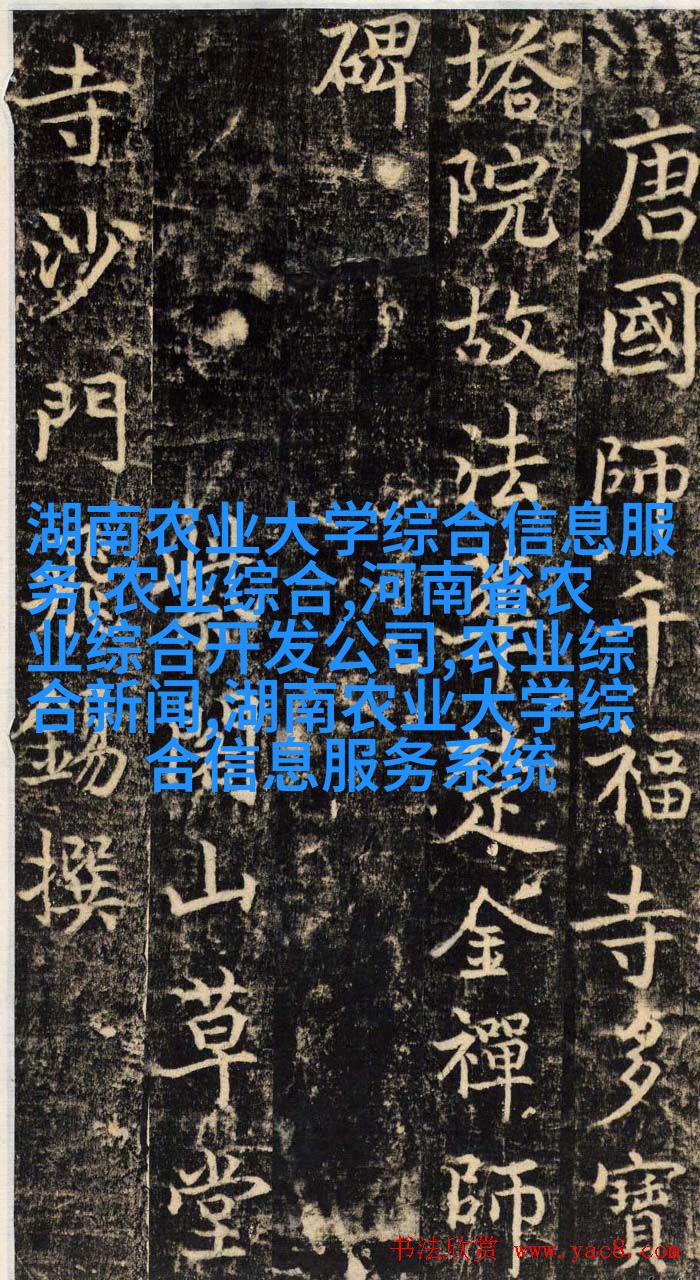 唐國師千福寺多寶
塔院故法楚金禪師
碑
山草堂
寺沙門錫撰
湖南农业大学综合信息服
务,农业综合,河南省农
业综合开发公司,农业综
合新闻,湖南农业大学综
合信息服务系统
书法欣赏 www.yac8.com